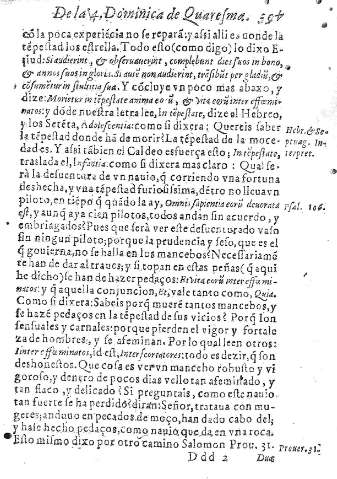 De la 4. Dominica de Quaresma.
cõ la poca experiẽcia no se repara: y assi alli es donde la
tẽpestad los estrella. Todo esto (como digo) lo dixo E-
jud: Si audierint, & obseruauerint, complebunt dies suos in bono,
& annos suos in gloria. Si autẽ non audierint, trãsibũt per gladiũ, &
cõsumẽtur in stultitia sua. Y cõcluye vn poco mas abaxo, y
dize: Morietur in tẽpestate anima eorũ, & vita eorũ inter effemi-
natos: y dõde nuestra letra lee, In tempestate, dize el Hebreo,
y los Setẽta, Adolescentia: como si dixera: Quereis saber
la tẽpestad donde hã de morir? La tẽpestad de la moce-
dad es. Y assi tãbien el Caldeo esfuerça esto; In tẽpestate,
traslada el, Infantia: como si dixera mas claro: Qual se-
rà la desuentura de vn nauio, q̃ corriendo vna fortuna
deshecha, y vna tẽpestad furiosissima, dẽtro no lleuasse
piloto, en tiẽpo q̃ quãdo la ay, Omnis sapientia eorũ deuorata
est, y aunq̃ aya cien pilotos, todos andan sin acuerdo, y
embriagados? Pues que serà ver este desuenturado vaso
sin ningun piloto; porque la prudencia y seso, que es el
q̃ gouierna, no se halla en los mancebos? Necessariamẽ
te han de dar al traues; y si topan en estas peñas (q̃ aqui
he dicho) se han de hazer pedaços: Et vita eorũ inter effemi-
natos: y q̃ aquella conjuncion, Et, vale tanto como, Quia.
Como si dixera: Sabeis porq̃ muerẽ tantos mancebos, y
se hazẽ pedaços en la tẽpestad de sus vicios? Porq̃ son
sensuales y carnales: porque pierden el vigor y fortale
za de hombres, y se afeminan. Por lo qual leen otros:
Inter effœminatos, id est, Inter scortatores: todo es dezir, q̃ son
deshonestos. Que cosa es ver vn mancebo robusto y vi
goroso, y dentro de pocos dias vello tan afeminado, y
tan flaco, y delicado? Si preguntais, como este nauio
tan fuerte se ha perdido? diran: Señor, trataua con mu-
geres; anduuo en pecados de moço, han dado cabo del;
y hase hecho pedaços, como nauio que da en vna roca.
Esto mismo dixo por otro camino Salomon Prou. 31.
Ddd 2 Due
Hebr. & Se-
ptuag. In-
terpret.
Psal. 106.
Prouer. 31.